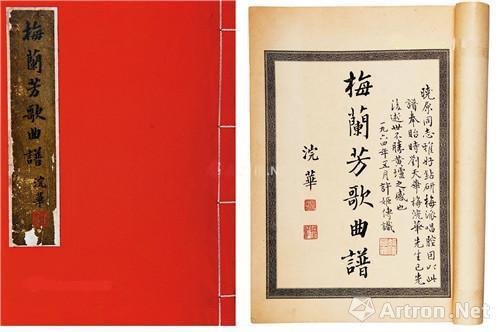 梅蘭芳歌曲譜
浣華
曉原同志雅好鑽研梅派唱腔因以此
譜奉貽時劉天華梅浣華先生已先
後逝世不勝黃壚之感也
一九六四年五月許姬傳識
梅蘭芳歌曲譜
浣華
Artron.Net